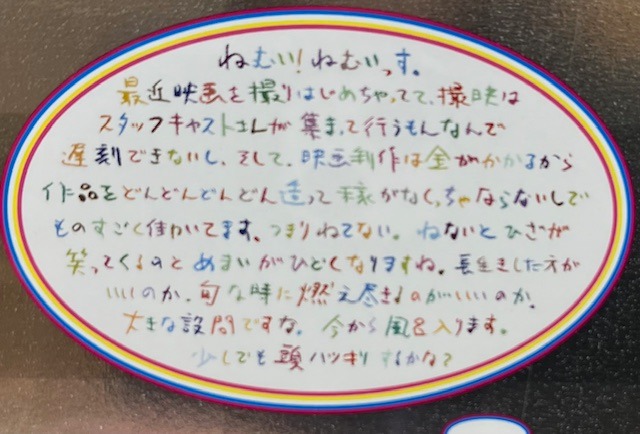 ねむい!ねむいっす。
最近映画を撮りはじめちゃってて、撮映は
スタッフキャストさんが集まって行うもんなんで
遅刻できないし、そして、映画制作は金がかかるから
作品をどんどんどんどん造って稼がなくっちゃならないしで
ものすごく働いてます、つまりねてない。ねないとひざが
笑ってくるのとめまいがひどくなりますね。長生きした方が
いいのか、旬な時に燃え尽きるのがいいのか、
大きな設問ですな。今から風呂入ります。
少しでも頭ハッキリするかな?